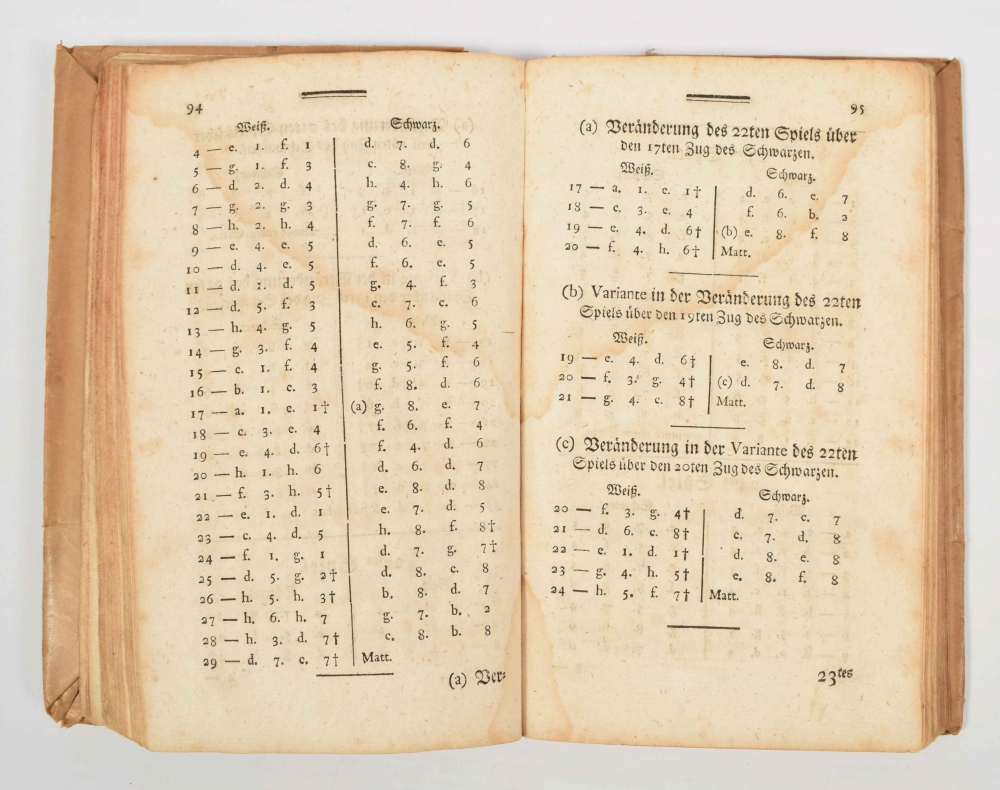 94
Weiß. Schwarz.
4 — e. 1. f. 1 d. 7. d. 6
5 — g. 1. f. 3 c. 8. g. 4
6 — d. 2. d. 4 h. 4. h. 6
7 — g. 2. g. 3 g. 7. g. 5
8 — h. 2. h. 4 f. 7. f. 6
9 — e. 4. e. 5 d. 6. e. 5
10 — d. 4. e. 5 f. 6. e. 5
11 — d. 1. d. 5 g. 4. f. 3
12 — d. 5. f. 3 c. 7. c. 6
13 — h. 4. g. 5 h. 6. g. 5
14 — g. 3. f. 4 e. 5. f. 4
15 — c. 1. f. 4 g. 5. f. 6
16 — b. 1. c. 3 f. 8. d. 6
17 — a. 1. e. 1† (a) g. 8. e. 7
18 — c. 3. e. 4 f. 6. f. 4
19 — e. 4. d. 6† f. 4. d. 6
20 — h. 1. h. 6 d. 6. d. 7
21 — f. 3. h. 5† e. 8. d. 8
22 — e. 1. d. 1 e. 7. d. 5
23 — c. 4. d. 5 h. 8. f. 8†
24 — f. 1. g. 1 d. 7. g. 7†
25 — d. 5. g. 2† d. 8. c. 8
26 — h. 5. h. 3† b. 8. d. 7
27 — h. 6. h. 7 g. 7. b. 2
28 — h. 3. d. 7† c. 8. b. 8
29 — d. 7. c. 7† Matt.
(a) Ver-
95
(a) Veränderung des 22ten Spiels über
den 17ten Zug des Schwarzen.
Weiß. Schwarz.
17 — a. 1. e. 1† d. 6. e. 7
18 — c. 3. e. 4 f. 6. b. 2
19 — e. 4. d. 6† (b) e. 8. f. 8
20 — f. 4. h. 6† Matt.
(b) Variante in der Veränderung des 22ten
Spiels über den 19ten Zug des Schwarzen.
Weiß. Schwarz.
19 — e. 4. d. 6† e. 8. d. 7
20 — f. 3. g. 4† (c) d. 7. d. 8
21 — g. 4. c. 8† Matt.
(c) Veränderung in der Variante des 22ten
Spiels über den 20ten Zug des Schwarzen.
Weiß. Schwarz.
20 — f. 3. g. 4† d. 7. c. 7
21 — d. 6. c. 8† c. 7. d. 8
22 — e. 1. d. 1† d. 8. e. 8
23 — g. 4. h. 5† e. 8. f. 8
24 — h. 5. f. 7† Matt.
23tes